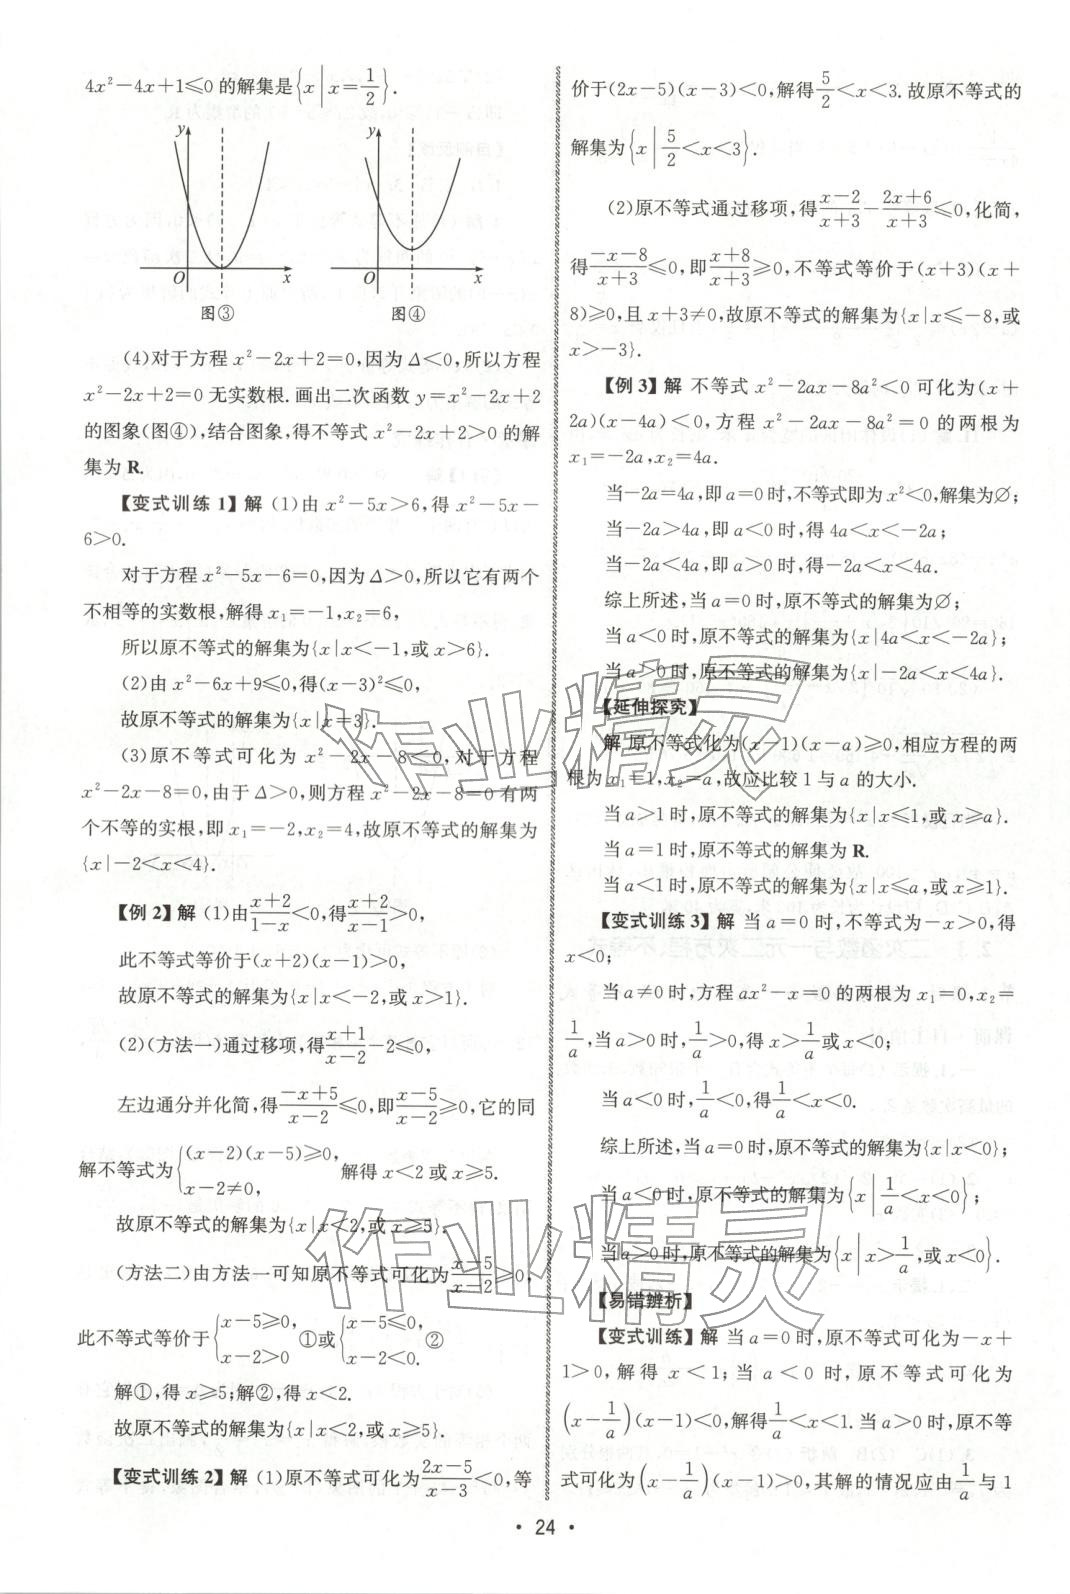 4x²－4x＋1≤0 的解集是{x|x＝1/2}.
y
O
x
图③
y
O
x
图④
(4)对于方程 x²－2x＋2＝0,因为 Δ＜0,所以方程
x²－2x＋2＝0 无实数根.画出二次函数 y＝x²－2x＋2
的图象(图④),结合图象,得不等式 x²－2x＋2＞0 的解
集为 R.
【变式训练 1】解 (1)由 x²－5x＞6,得 x²－5x－
6＞0.
对于方程 x²－5x－6＝0,因为 Δ＞0,所以它有两个
不相等的实数根,解得 x₁＝－1,x₂＝6,
所以原不等式的解集为{x|x＜－1,或 x＞6}.
(2)由 x²－6x＋9≤0,得(x－3)²≤0,
故原不等式的解集为{x|x＝3}.
(3)原不等式可化为 x²－2x－8＜0,对于方程
x²－2x－8＝0,由于 Δ＞0,则方程 x²－2x－8＝0 有两
个不等的实根,即 x₁＝－2,x₂＝4,故原不等式的解集为
{x|－2＜x＜4}.
【例 2】解 (1)由(x＋2)/(1－x)＜0,得(x＋2)/(x－1)＞0,
此不等式等价于(x＋2)(x－1)＞0,
故原不等式的解集为{x|x＜－2,或 x＞1}.
(2)(方法一)通过移项,得(x＋1)/(x－2)－2≤0,
左边通分并化简,得(－x＋5)/(x－2)≤0,即(x－5)/(x－2)≥0,它的同
解不等式为{(x－2)(x－5)≥0, x－2≠0, 解得 x＜2 或 x≥5.
故原不等式的解集为{x|x＜2,或 x≥5}.
(方法二)由方法一可知原不等式可化为(x－5)/(x－2)≥0,
此不等式等价于{x－5≥0, x－2＞0 ①或{x－5≤0, x－2＜0. ②
解①,得 x≥5;解②,得 x＜2.
故原不等式的解集为{x|x＜2,或 x≥5}.
【变式训练 2】解 (1)原不等式可化为(2x－5)/(x－3)＜0,等
价于(2x－5)(x－3)＜0,解得5/2＜x＜3.故原不等式的
解集为{x|5/2＜x＜3}.
(2)原不等式通过移项,得(x－2)/(x＋3)－(2x＋6)/(x＋3)≤0,化简,
得(－x－8)/(x＋3)≤0,即(x＋8)/(x＋3)≥0,不等式等价于(x＋3)(x＋
8)≥0,且 x＋3≠0,故原不等式的解集为{x|x≤－8,或
x＞－3}.
【例 3】解 不等式 x²－2ax－8a²＜0 可化为(x＋
2a)(x－4a)＜0,方程 x²－2ax－8a²＝0 的两根为
x₁＝－2a,x₂＝4a.
当－2a＝4a,即 a＝0 时,不等式即为 x²＜0,解集为∅;
当－2a＞4a,即 a＜0 时,得 4a＜x＜－2a;
当－2a＜4a,即 a＞0 时,得－2a＜x＜4a.
综上所述,当 a＝0 时,原不等式的解集为∅;
当 a＜0 时,原不等式的解集为{x|4a＜x＜－2a};
当 a＞0 时,原不等式的解集为{x|－2a＜x＜4a}.
【延伸探究】
解 原不等式化为(x－1)(x－a)≥0,相应方程的两
根为 x₁＝1,x₂＝a,故应比较 1 与 a 的大小.
当 a＞1 时,原不等式的解集为{x|x≤1,或 x≥a}.
当 a＝1 时,原不等式的解集为 R.
当 a＜1 时,原不等式的解集为{x|x≤a,或 x≥1}.
【变式训练 3】解 当 a＝0 时,不等式为－x＞0,得
x＜0;
当 a≠0 时,方程 ax²－x＝0 的两根为 x₁＝0,x₂＝
1/a,当 a＞0 时,1/a＞0,得 x＞1/a或 x＜0;
当 a＜0 时,1/a＜0,得1/a＜x＜0.
综上所述,当 a＝0 时,原不等式的解集为{x|x＜0};
当 a＜0 时,原不等式的解集为{x|1/a＜x＜0};
当 a＞0 时,原不等式的解集为{x|x＞1/a,或 x＜0}.
【易错辨析】
【变式训练】解 当 a＝0 时,原不等式可化为－x＋
1＞0,解得 x＜1;当 a＜0 时,原不等式可化为
(x－1/a)(x－1)＜0,解得1/a＜x＜1.当 a＞0 时,原不等
式可化为(x－1/a)(x－1)＞0,其解的情况应由1/a与 1
作业精灵
作业精灵
• 24 •